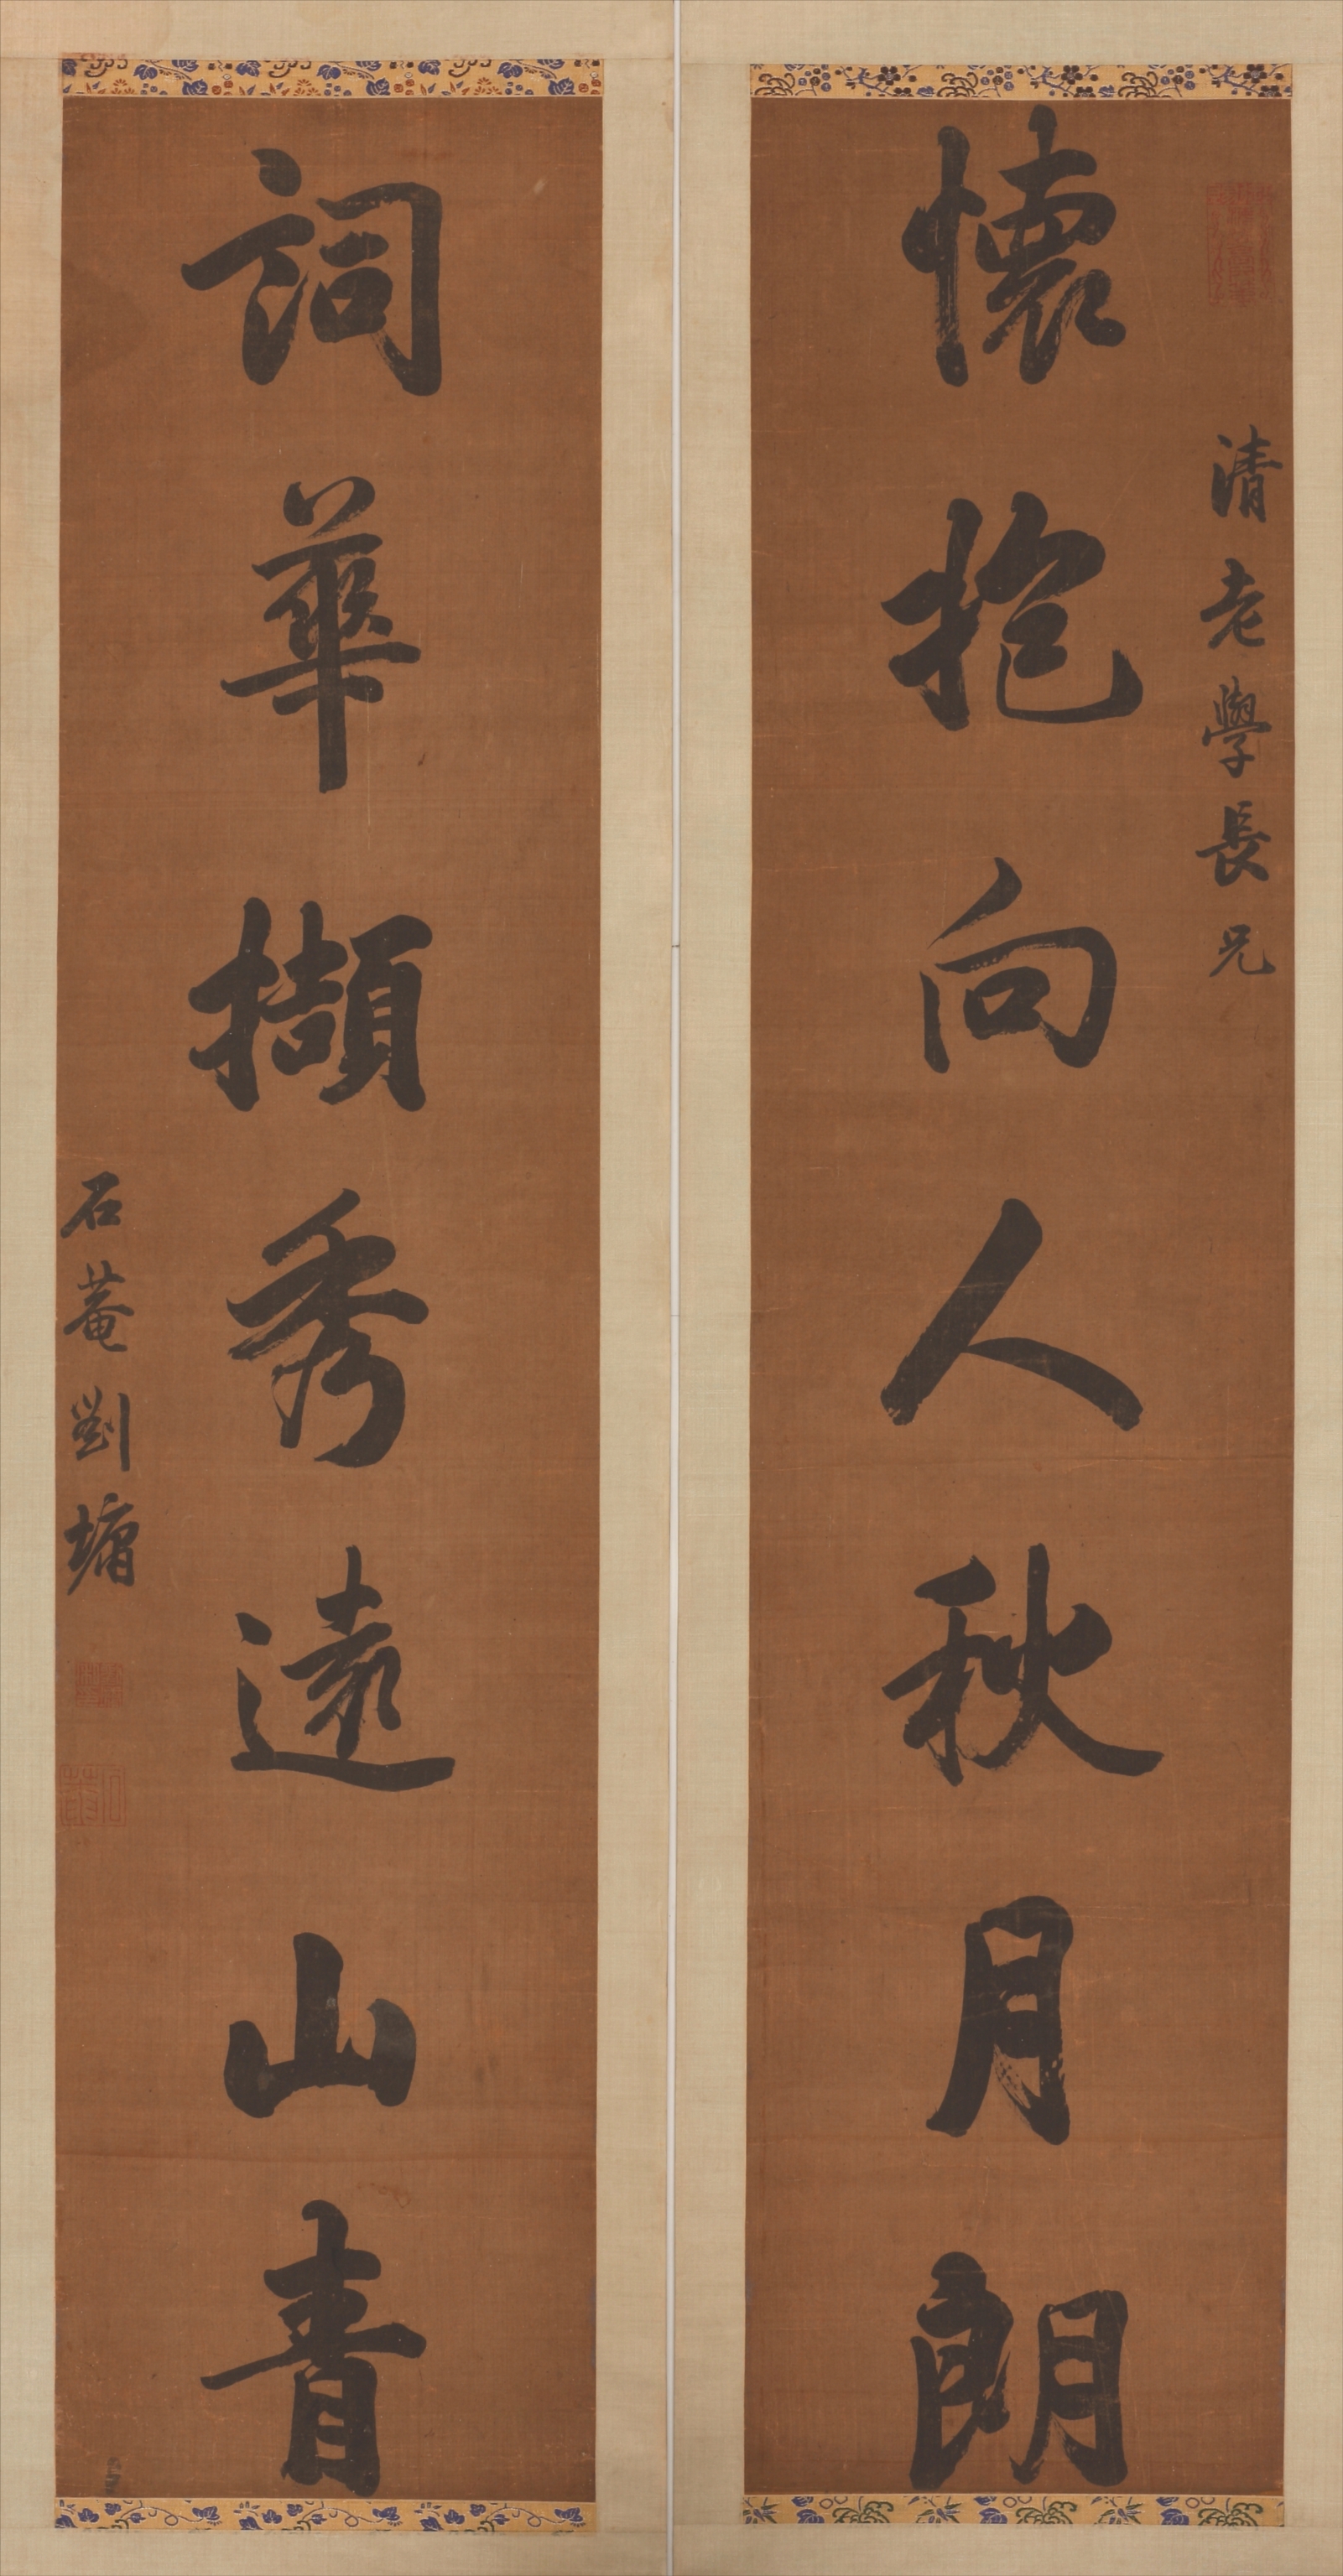 清老學長兄
懷抱向人秋月朗
詞華擷秀遠山青
石菴劉墉